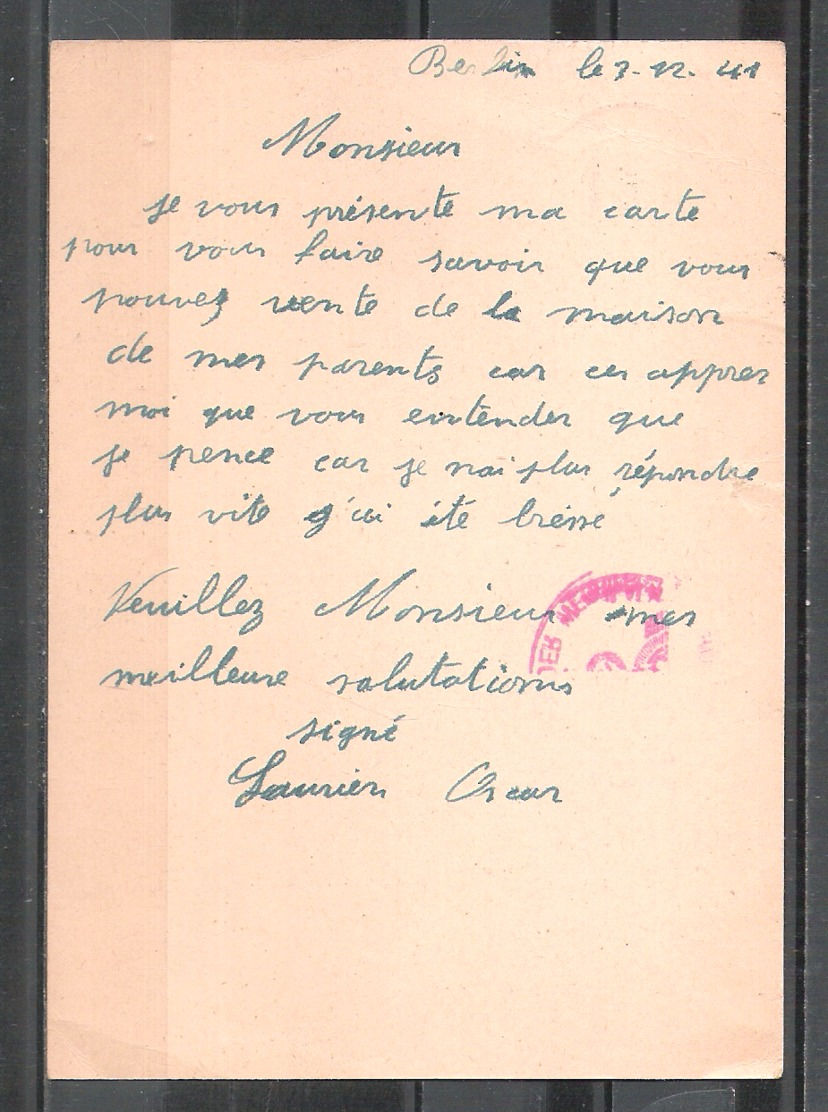 Berlin le 7-12. 41
Monsieur
je vous présente ma carte
pour vous faire savoir que vous
pouvez vente de la maison
de mes parents car ces appres
moi que vous entender que
je pence car je nai plus répondre
plus vite g'ai été blessé
Veuillez Monsieur mes
meilleure salutations
signé
Laurien Oscar
DER